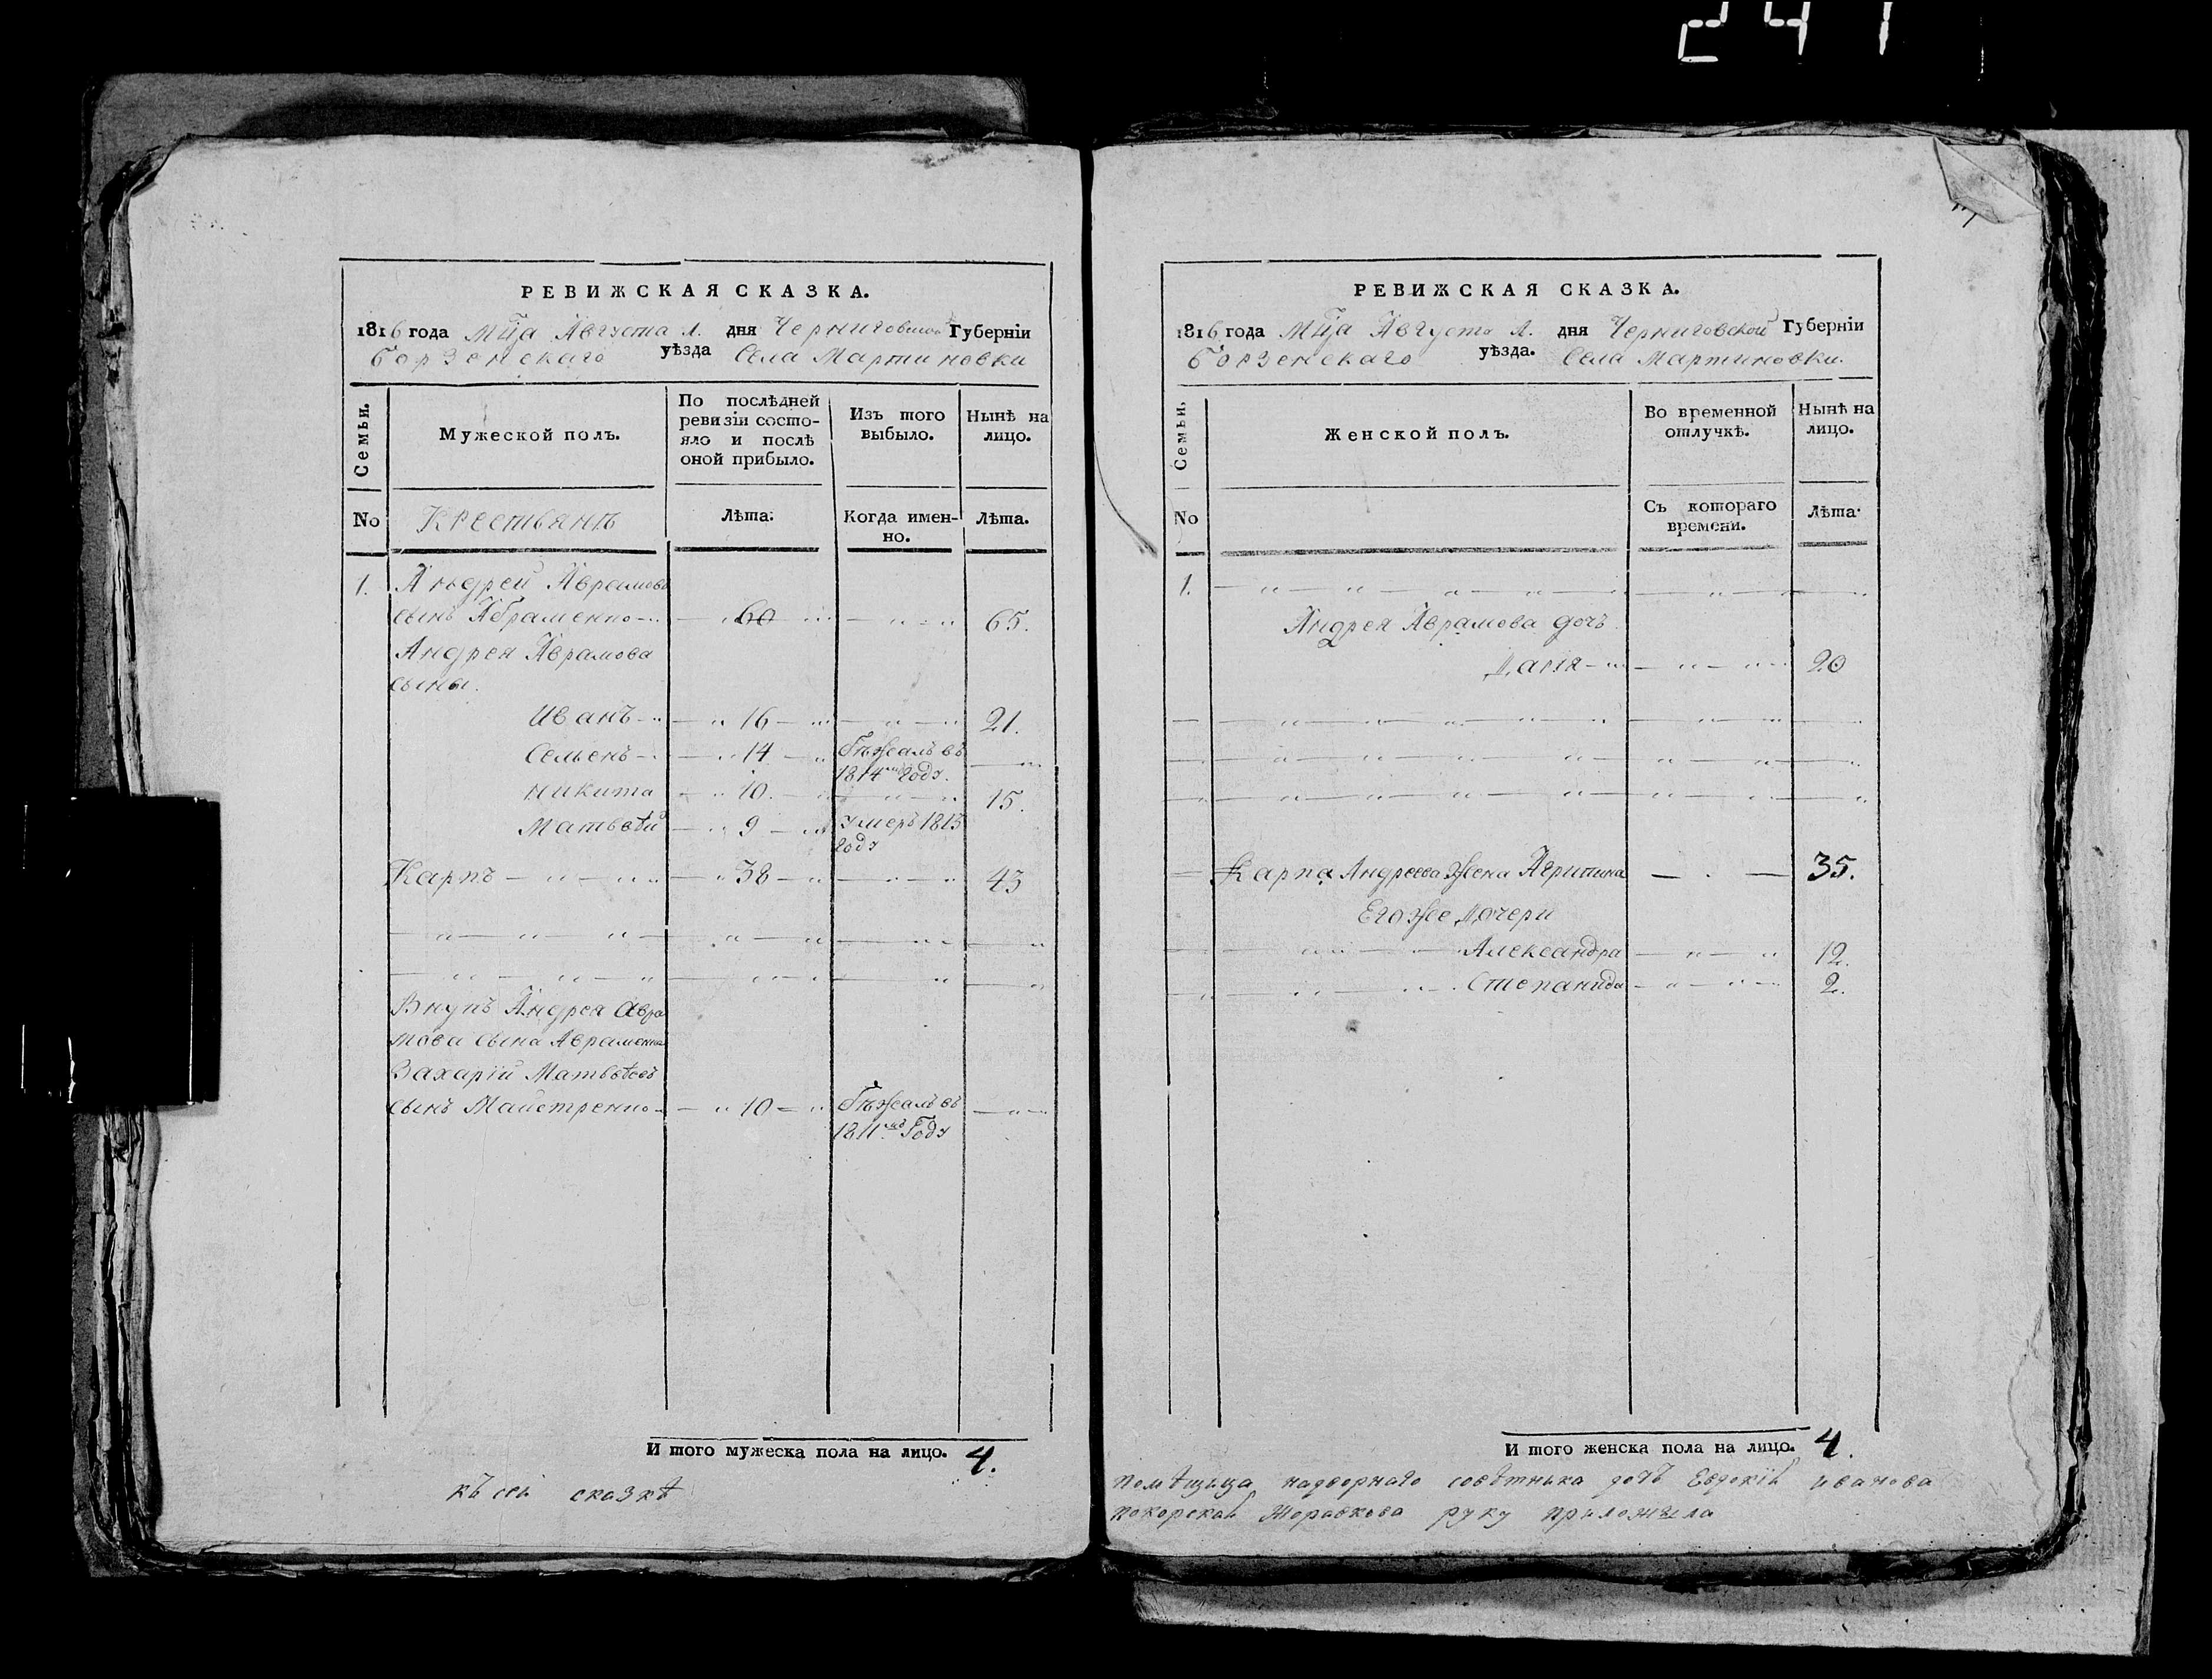 241
РЕВИЖСКАЯ СКАЗКА.
1816 года Мца Августа Л. дня Черниговской Губерніи
Борзенскаго уѣзда Села Мартиновки
Семьи.
Мужеской полъ.
По послѣдней ревизіи состояло и послѣ оной прибыло.
Изъ того выбыло.
Нынѣ на лицо.
No Крестьянъ Лѣта. Когда именно. Лѣта.
1. Андрей Аврамовъ
сынъ Абраменко 60 65.
Андрея Аврамова
сыны.
Иванъ 16 21.
Семенъ 14 бѣжалъ въ 1814мъ году.
Никита 10. 15.
Матвѣй 9 умеръ 1813 году
Карпъ 38 43
Внукъ Андрея Авра
мова сына Авраменка
Захарій Матвѣевъ
сынъ Майстренко 10 бѣжалъ въ 1811мъ Году
И того мужеска пола на лицо. 4.
къ сей сказкѣ
РЕВИЖСКАЯ СКАЗКА.
1816 года Мца Августа Л. дня Черниговской Губерніи
Борзенскаго уѣзда. Села Мартиновки.
Семьи.
Женской полъ.
Во временной отлучкѣ.
Нынѣ на лицо.
No Съ котораго времени. Лѣта.
1.
Андрея Аврамова дочь
20
Карпа Андреева жена Агрипина 35.
Его же дочери
Александра 12.
Степанида 2.
И того женска пола на лицо. 4.
помѣщица надворнаго совѣтника дочь Евдокія иванова
руку приложила